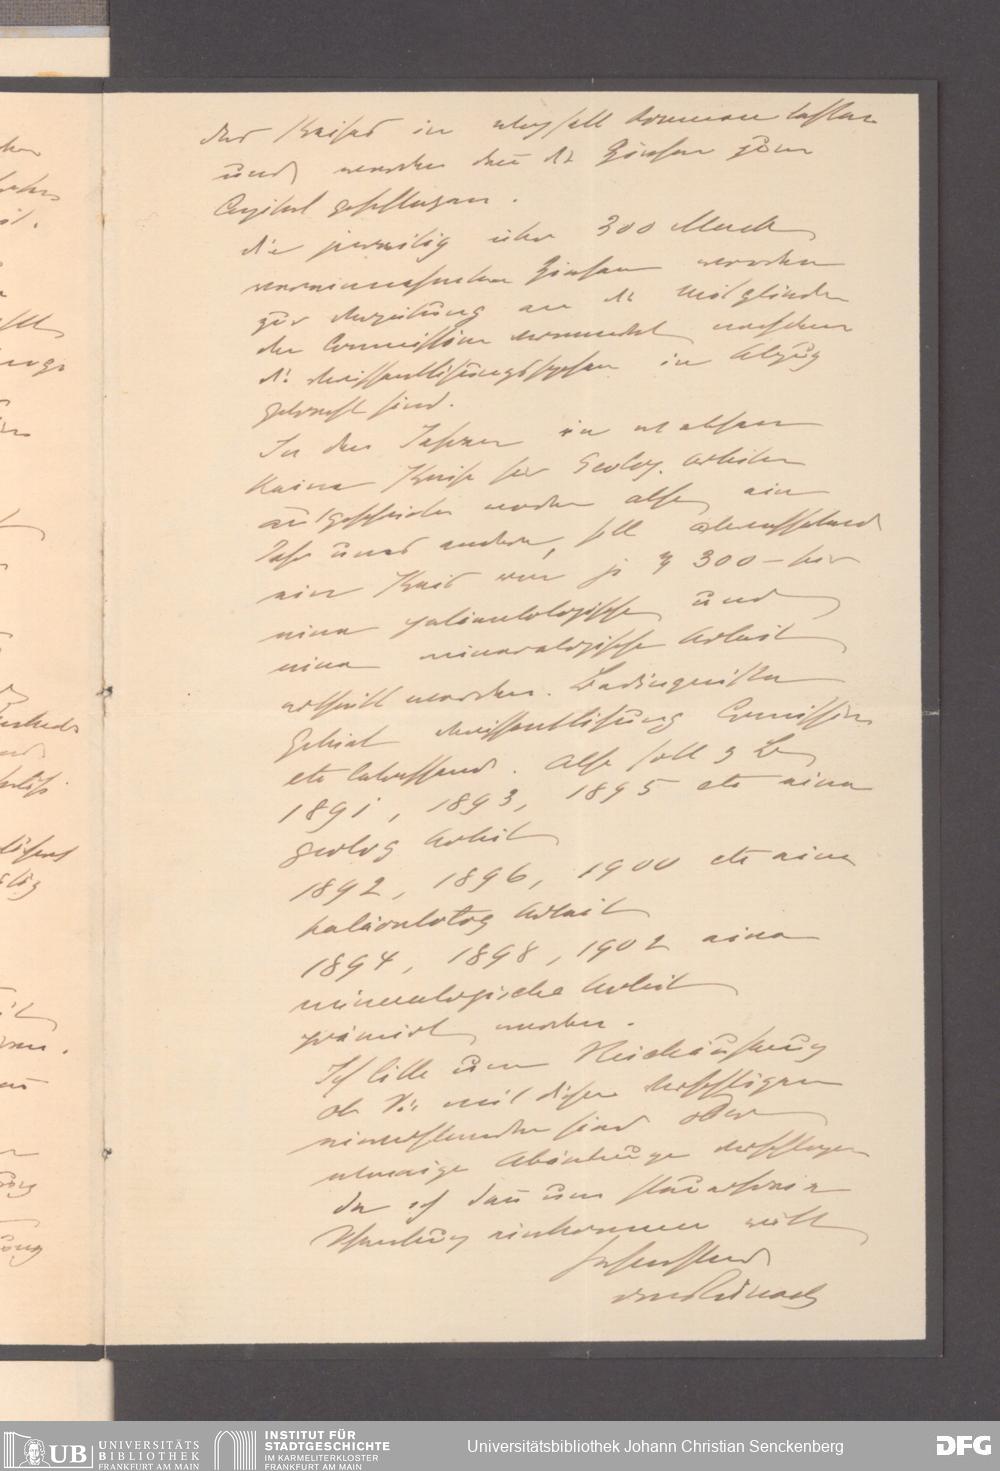 des Preises in Wegfall kommen lassen
und werden dann die Zinsen zum
Capital geschlagen.
die jeweilig über 300 Mark
vereinnahmten Zinsen werden
zur Vertheilung an die Mitglieder
der Commission verwendet nachdem
die Veröffentlichungsspesen in Abzug
gebracht sind.
In den Jahren in welchen
keine Preise für Geolog. Arbeiten
ausgeschrieben werden also ein
Jahr ums andere, soll abwechselnd
ein Preis von je M 300 – für
eine paläontologische und
eine mineralogische Arbeit
ertheilt werden. Bedingnisse
Gebiet Veröffentlichung Comission
etc betreffend. Also soll z B
1891, 1893, 1895 etc eine
geolog Arbeit
1892, 1896, 1900 etc eine
paläontolog Arbeit
1894, 1898, 1902 eine
mineralogische Arbeit
prämirt werden.
Ich bitte um Rückäußerung
ob Sie mit diesen Vorschlägen
einverstanden sind oder
etwaige Abänderungen vorschlagen
da ich dann um steuerfreie
Schenkung einkommen will
Hochachtend
von Reinach
UB UNIVERSITÄTS
BIBLIOTHEK
FRANKFURT AM MAIN
INSTITUT FÜR
STADTGESCHICHTE
IM KARMELITERKLOSTER
FRANKFURT AM MAIN
Universitätsbibliothek Johann Christian Senckenberg
DFG